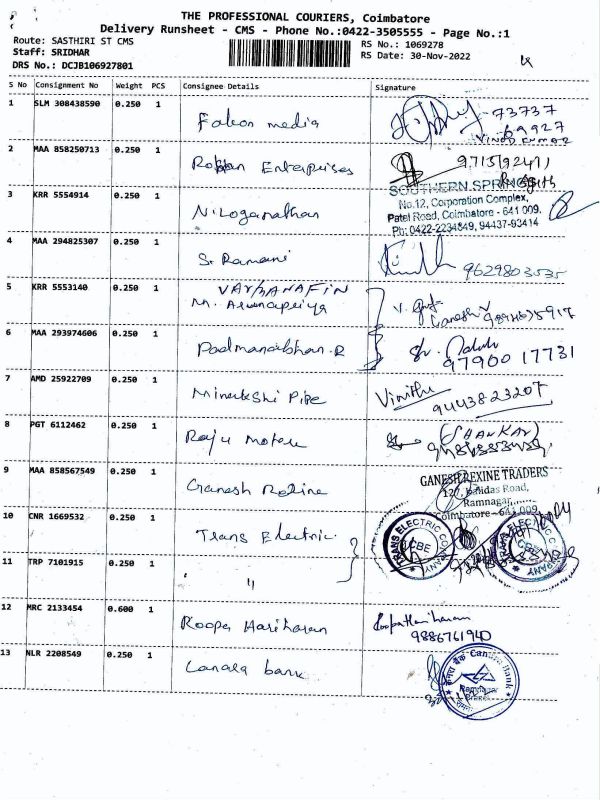 THE PROFESSIONAL COURIERS, Coimbatore
Delivery Runsheet - CMS - Phone No.:0422-3505555 - Page No.:1
Route: SASTHIRI ST CMS
RS No.: 1069278
Staff: SRIDHAR
RS Date: 30-Nov-2022
DRS No.: DCJB106927801
S No Consignment No Weight PCS Consignee Details Signature
1 SLM 308438590 0.250 1 Falcon media 73737
69927
VINOD KUMAR
2 MAA 858250713 0.250 1 Enterprises
SOUTHERN SPRINGS
3 KRR 5554914 0.250 1 N. Loganathan No.12, Corporation Complex,
Patel Road, Coimbatore - 641 009.
Ph: 0422-2234849, 94437-93414
4 MAA 294825307 0.250 1 S. Ramani 9629803535
5 KRR 5553140 0.250 1
M. Arunapriya V.
6 MAA 293974606 0.250 1 Padmanabhan. R
97900 17731
7 AMD 25922709 0.250 1 Minakshi Pipe Vinitha
9443823207
8 PGT 6112462 0.250 1 Raju Motors (SHANKAR)
9 MAA 858567549 0.250 1 Ganesh Rexine GANESH REXINE TRADERS
Ramnagar,
Coimbatore - 641 009
10 CNR 1669532 0.250 1 Trans Electric TRANS ELECTRIC COMPANY
CBE
11 TRP 7101915 0.250 1 "
12 MRC 2133454 0.600 1 Roopa Hariharan
9886761940
13 NLR 2208549 0.250 1 Canara bank Canara Bank
Ramnagar